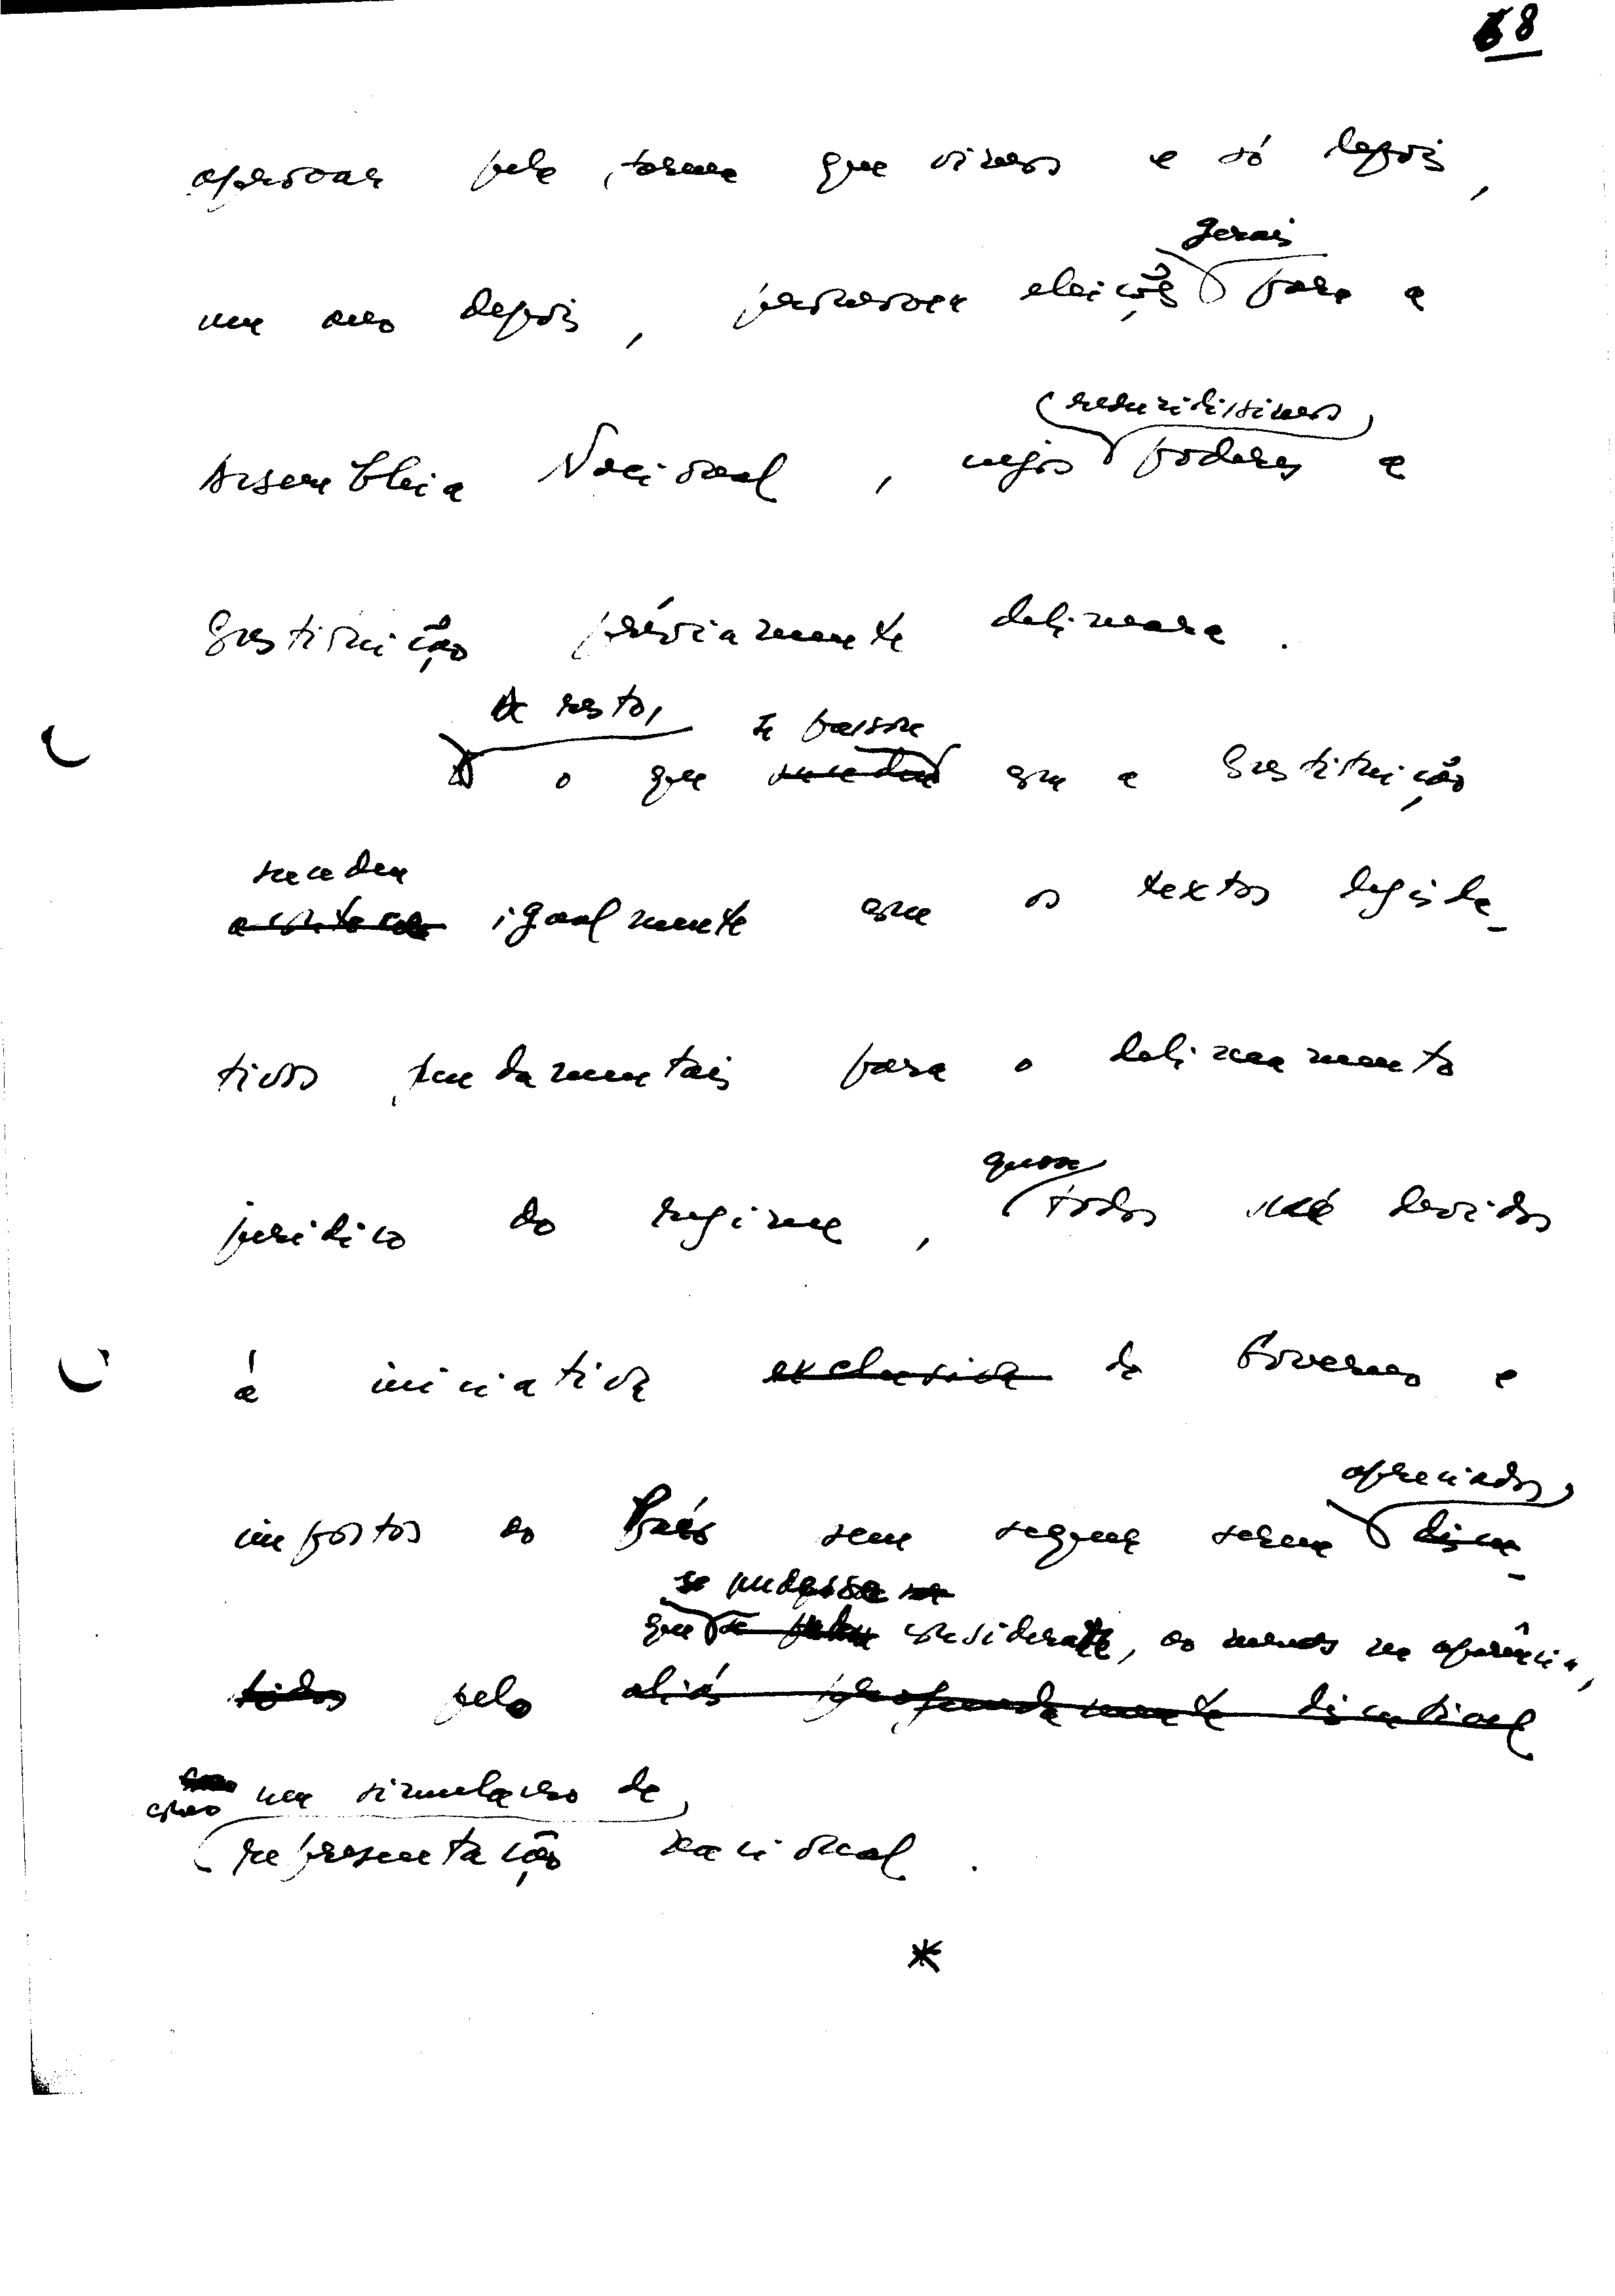 68
aprovar pela forma que vimos e só depois,
gerais
um ano depois, promover eleições para a
reduzidíssimos
Assembleia Nacional, cujos poderes a
Constituição préviamente delineara.
De resto, se passou
o que sucedeu com a Constituição
sucedeu
aconteceu igualmente com os textos legisla-
tivos fundamentais para o delineamento
quase
jurídico do regime, todos devidos
à iniciativa exclusiva do Governo e
apreciados
impostos ao País sem sequer serem discu-
se pudesse
que se considerar, ao menos na aparência,
tidos pelo aliás profundamente discutível
como um simulacro de
representação nacional.
*